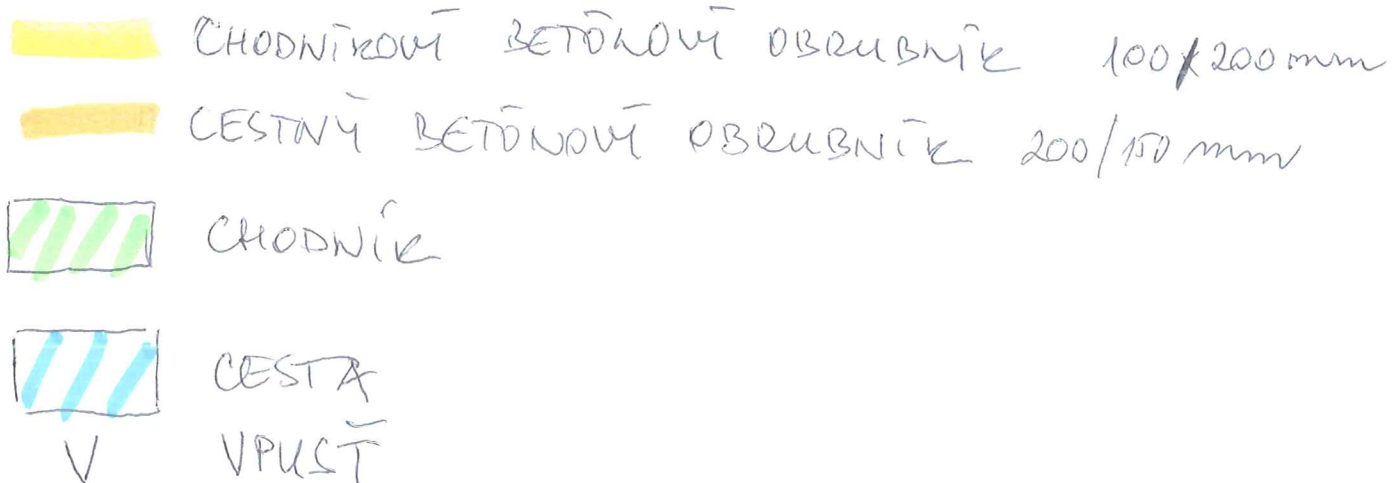 CHODNÍKOVÝ BETÓNOVÝ OBRUBNÍK 100/200 mm
CESTNÝ BETÓNOVÝ OBRUBNÍK 200/150 mm
CHODNÍK
CESTA
V VPUSŤ